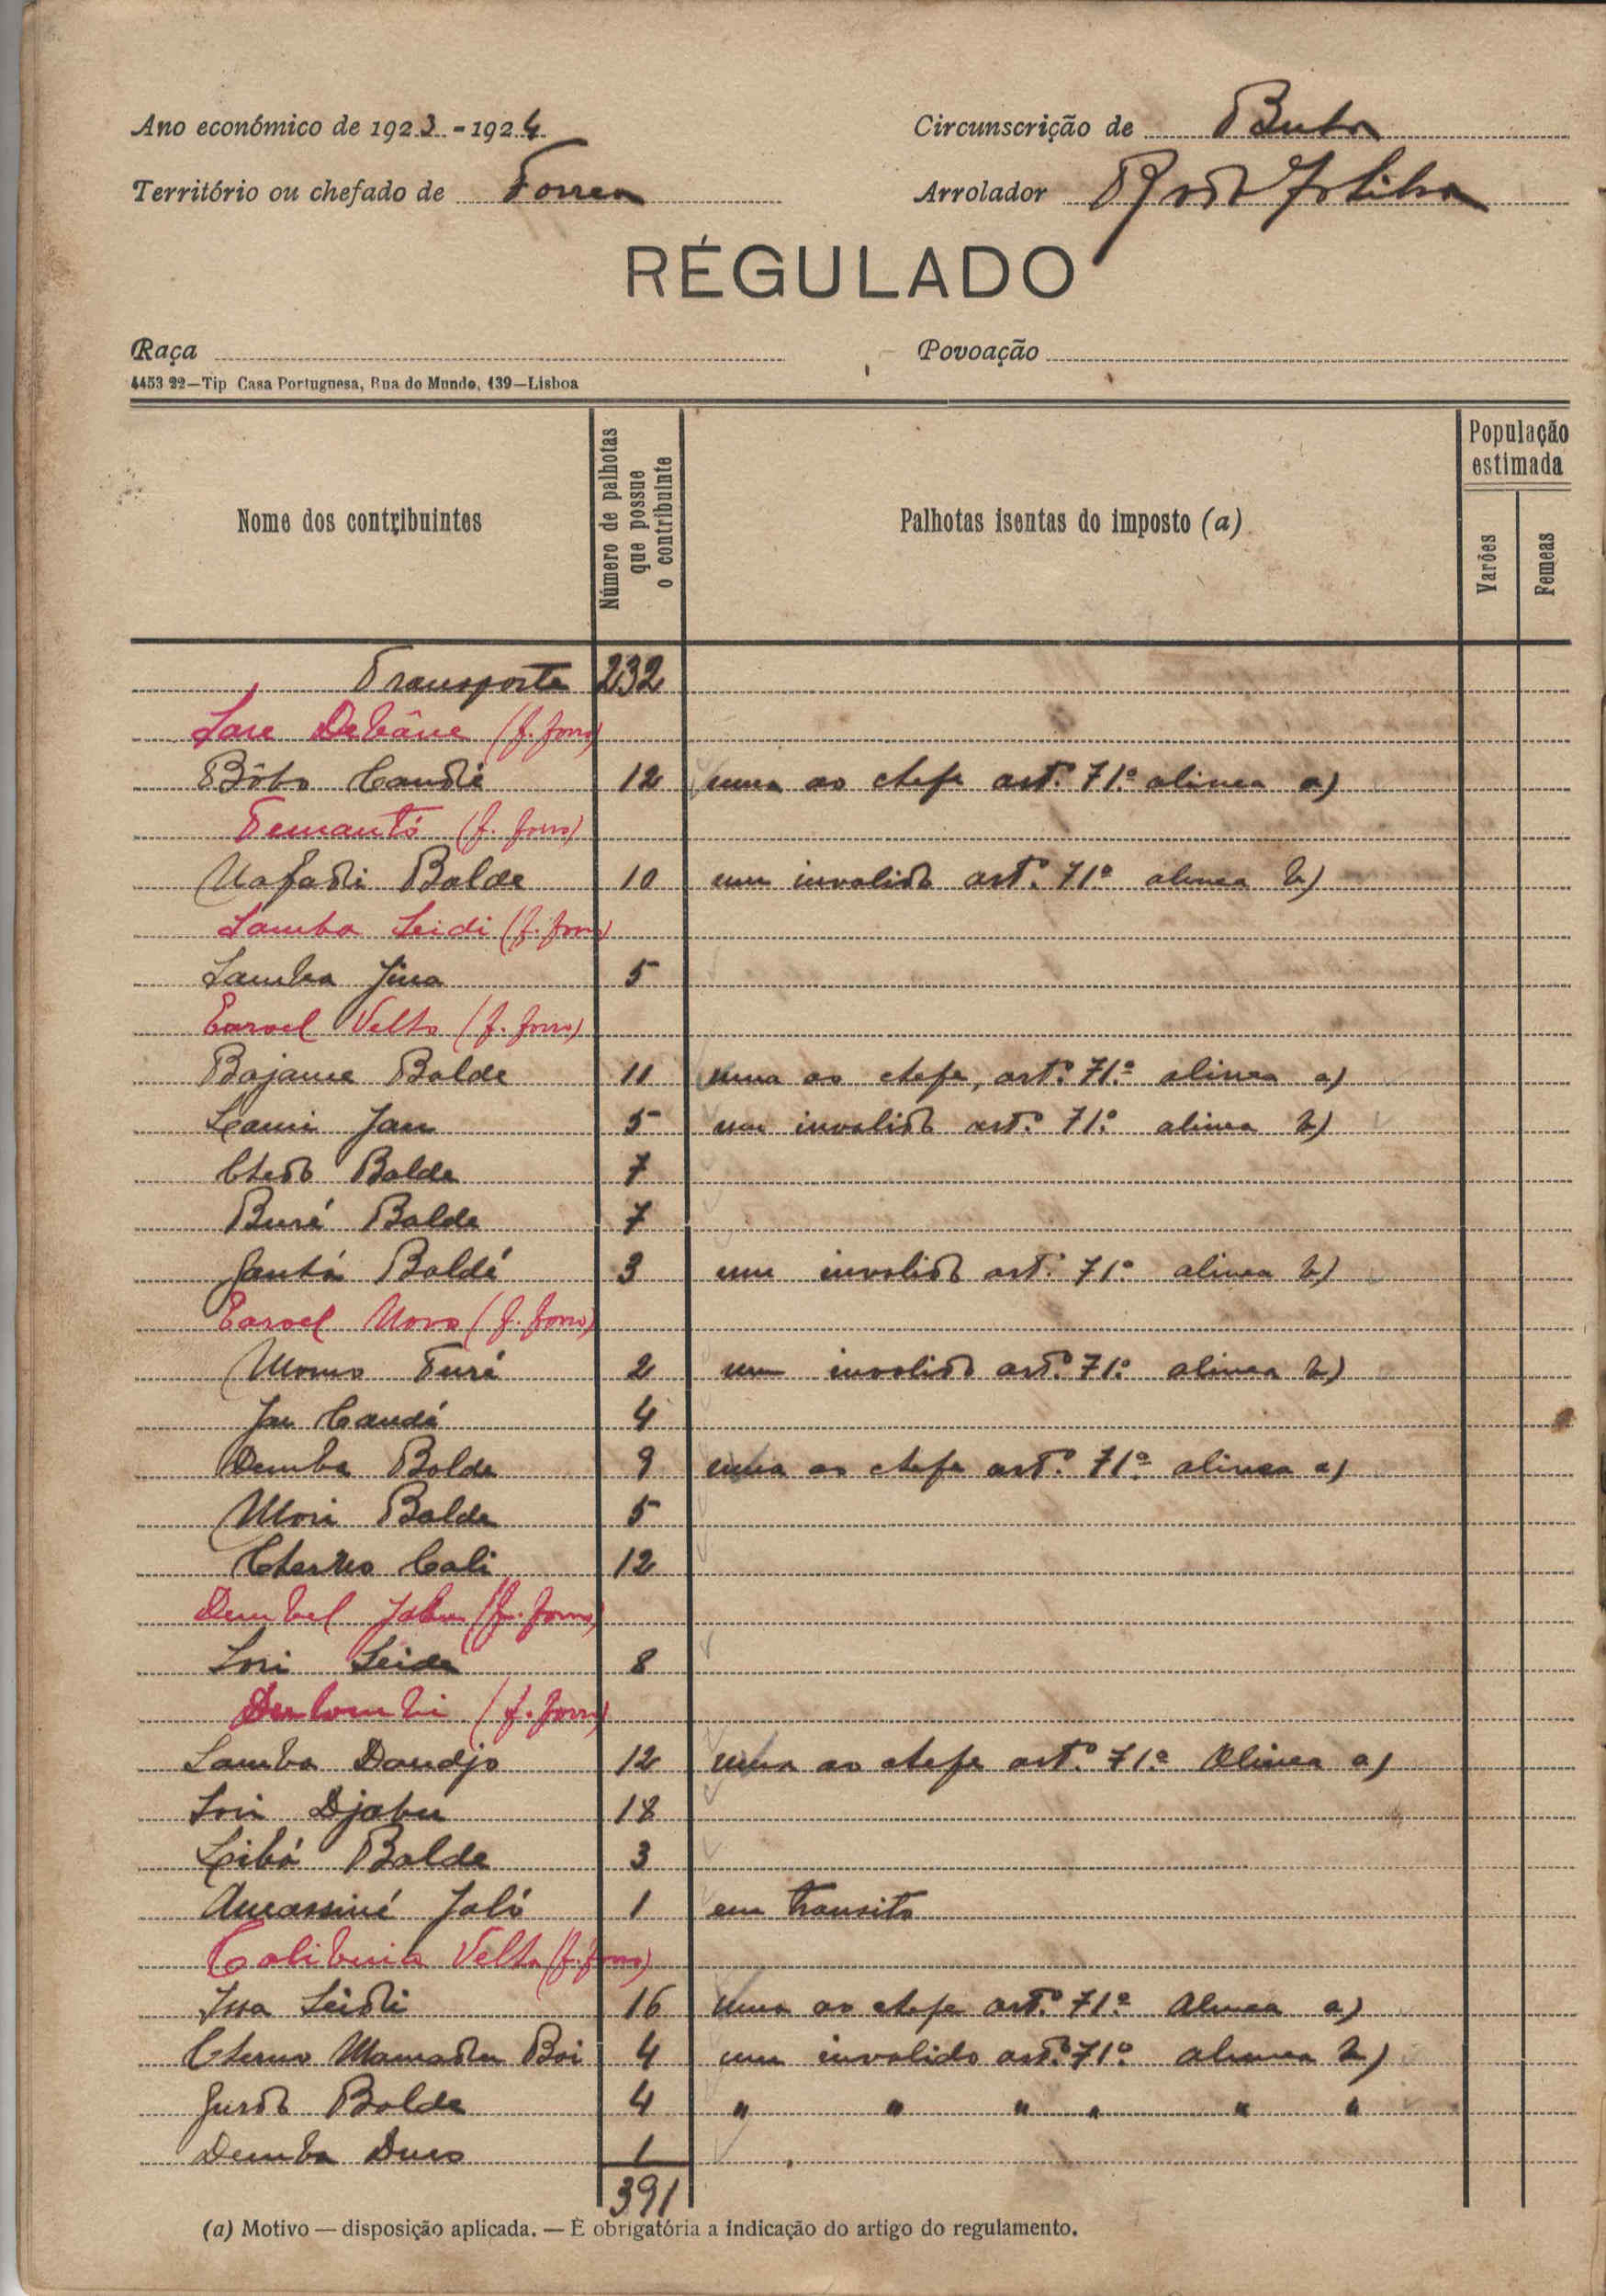 Ano económico de 1923 - 1924
Circunscrição de Buba
Território ou chefado de Forrea
Arrolador
RÉGULADO
Raça
Povoação
4453 22—Tip Casa Portuguesa, Rua do Mundo, 139—Lisboa
Nome dos contribuintes
Número de palhotas que possue o contribuinte
Palhotas isentas do imposto (a)
População estimada
Varões
Femeas
Transporte 232
Sare Debâne (f. forro)
Bôbo Candé 12 uma ao chefe artº. 71º. alinea a)
Temantó (f. forro)
Nafadi Balde 10 um invalido artº. 71º alinea b)
Samba Seidi (f. forro)
Samba Jina 5
Earoel Velho (f. forro)
Bajame Balde 11 uma ao chefe, artº. 71º. alinea a)
Sami Jau 5 um invalido artº. 71º. alinea b)
Chedo Balde 7
Buré Balde 7
Jantá Baldé 3 um invalido artº. 71º. alinea b)
Earoel Novo (f. forro)
Momo Turé 2 um invalido artº. 71º. alinea b)
Jau Candé 4
Demba Balde 9 uma ao chefe artº. 71º. alinea a)
Mori Balde 5
Cherno Cali 12
Dembel Jabu (f. forro)
Sori Seide 8
(f. forro)
Samba Dandjo 12 uma ao chefe artº. 71º. Alinea a)
Sori Djabu 18
Sibó Balde 3
Amassiné Jaló 1 em transito
Colibuia Velha (f. forro)
Issa Seidi 16 uma ao chefe artº. 71º. Alinea a)
Cherno Mamadu Boi 4 um invalido artº. 71º. alinea b)
Jurdo Balde 4 " " " " " "
Demba Duco 1
391
(a) Motivo — disposição aplicada. — É obrigatória a indicação do artigo do regulamento.